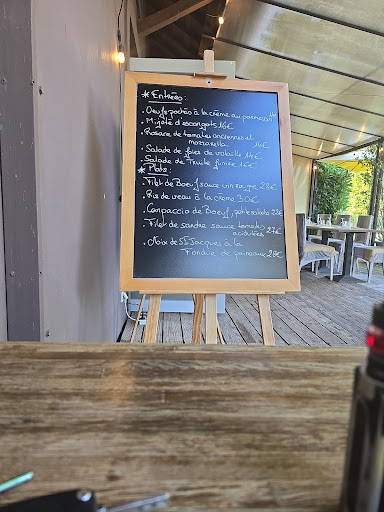 * Entrées:
. Oeufs pochés à la crème au parmesan 14€
. Mijoté d'escargots 16€
. Rosace de tomates anciennes et
mozzarella 14€
. Salade de foies de volaille 14€
. Salade de Truite fumée 16€
* Plats:
. Filet de Boeuf sauce vin rouge 28€
. Ris de veau à la crème 30€
. Carpaccio de Boeuf, petite salade 22€
. Filet de sandre sauce tomates
acidulées 27€
. Noix de St Jacques à la
Fondue de poireaux 28€